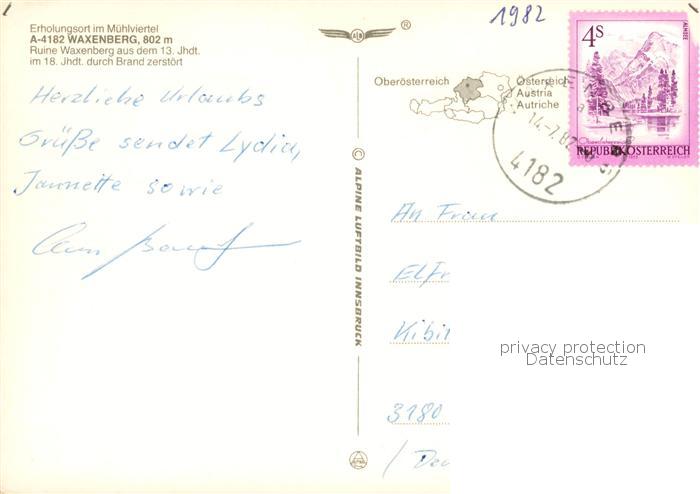 Erholungsort im Mühlviertel
A-4182 WAXENBERG, 802 m
Ruine Waxenberg aus dem 13. Jhdt.
im 18. Jhdt. durch Brand zerstört
Herzliche Urlaubs
Grüße sendet Lydia,
Jannette sowie
®
© ALPINE LUFTBILD INNSBRUCK
1982
Oberösterreich
Österreich
Austria
Autriche
4S
ALMSEE
REPUBLIK ÖSTERREICH
14.-7.82
4182
An Frau
Elfr
Kibit
3180
privacy protection
Datenschutz